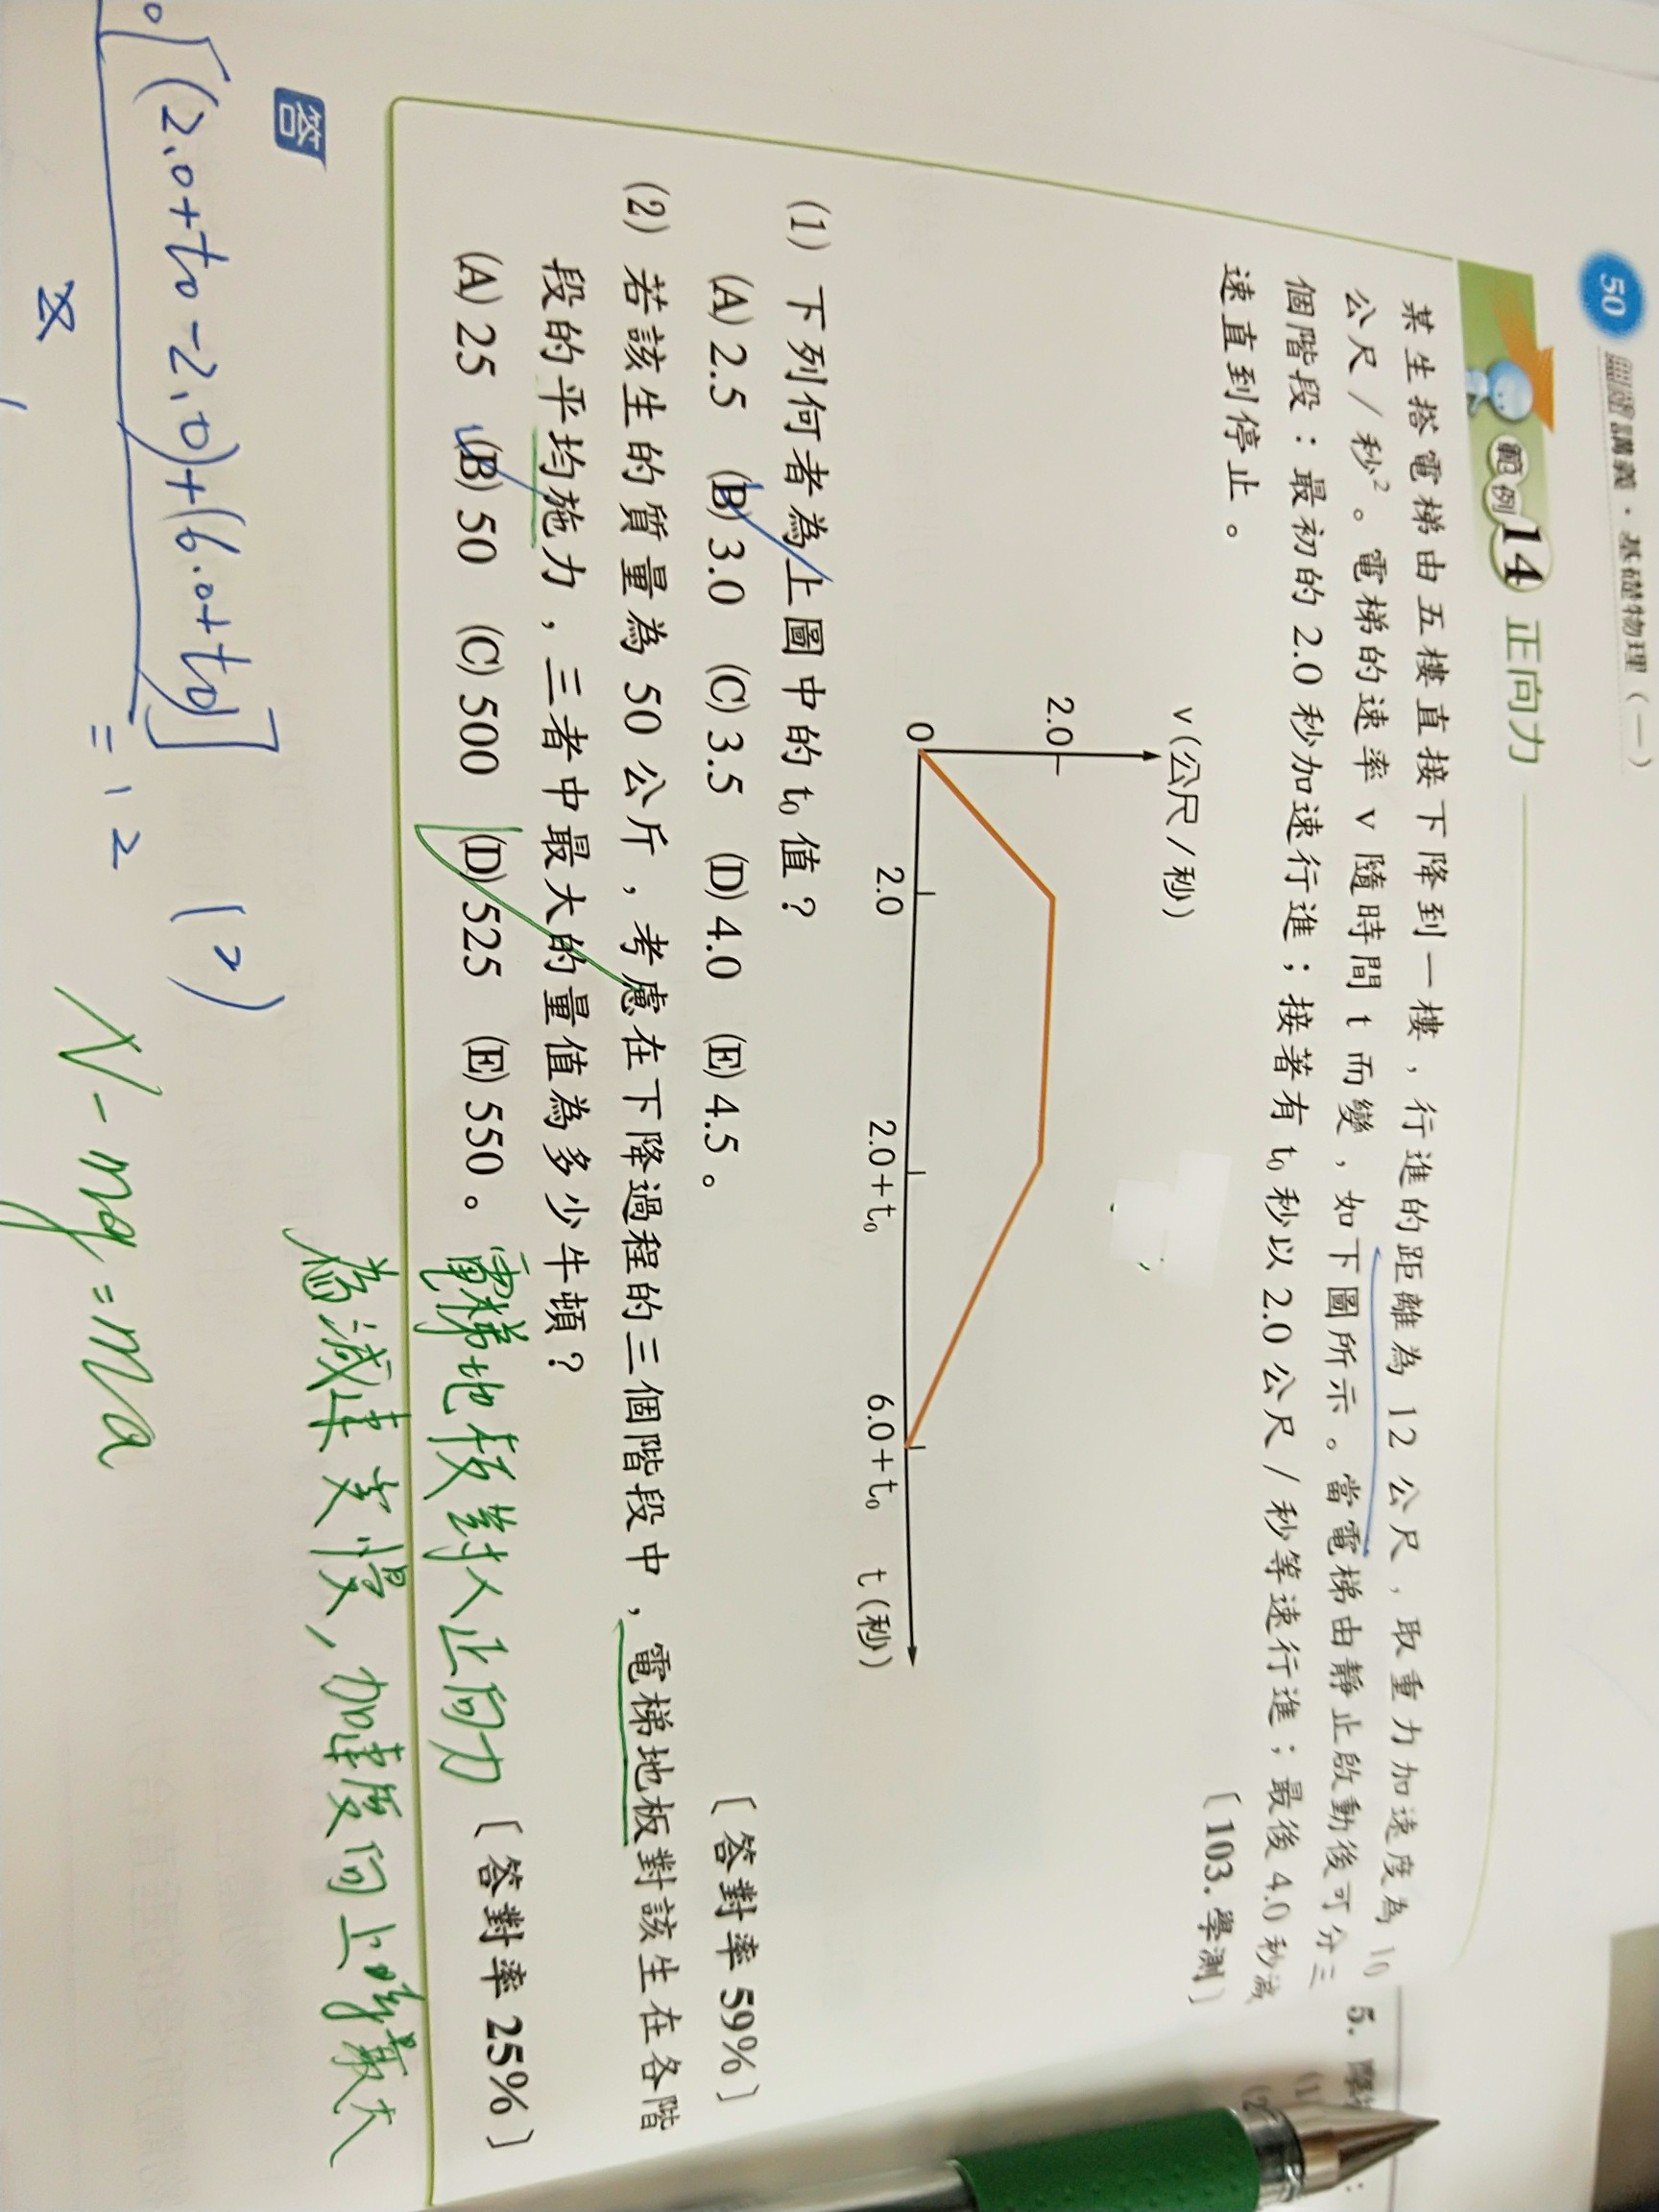 50 講義．基礎物理（一）
範例14 正向力
某生搭電梯由五樓直接下降到一樓，行進的距離為 12 公尺，取重力加速度為 10
公尺／秒²。電梯的速率 v 隨時間 t 而變，如下圖所示。當電梯由靜止啟動後可分三
個階段：最初的 2.0 秒加速行進；接著有 t₀ 秒以 2.0 公尺／秒等速行進；最後 4.0 秒減
速直到停止。
〔103.學測〕
v(公尺／秒)
2.0
0
2.0
2.0+t₀
6.0+t₀
t(秒)
(1) 下列何者為上圖中的 t₀ 值？
(A) 2.5 (B) 3.0 (C) 3.5 (D) 4.0 (E) 4.5。
〔答對率 59%〕
(2) 若該生的質量為 50 公斤，考慮在下降過程的三個階段中，電梯地板對該生在各階
段的平均施力，三者中最大的量值為多少牛頓？
(A) 25 (B) 50 (C) 500 (D) 525 (E) 550。
〔答對率 25%〕
電梯地板對人正向力
為減速變慢，加速度向上時最大
答
[(2.0+t₀-2.0)+(6.0+t₀)]
= 12
(2)
N - mg = ma
5.